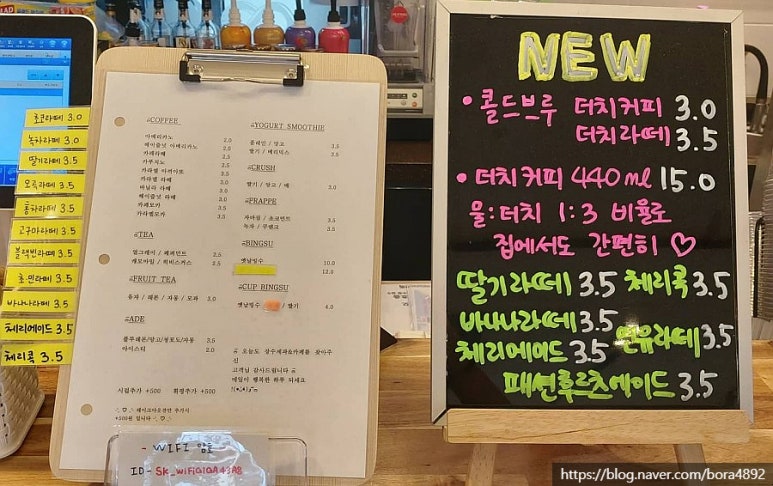 초코라떼 3.0
녹차라떼 3.0
딸기라떼 3.5
오곡라떼 3.5
홍차라떼 3.5
고구마라떼 3.5
블랙빈라떼 3.5
바나나라떼 3.5
체리에이드 3.5
체리콕 3.5
#COFFEE
아메리카노 2.0
헤이즐넛 아메리카노
카페라떼
카푸치노
카라멜 마끼아또
카라멜 라떼
바닐라 라떼
헤이즐넛 라떼
카페모카
카라멜모카
#TEA
얼그레이 / 페퍼민트 2.5
캐모마일 / 히비스커스 2.5
#FRUIT TEA
유자 / 레몬 / 자몽 / 모과 3.0
#ADE
블루레몬/망고/청포도/자몽 3.5
아이스티 2.0
시럽추가 +500 휘핑추가 +500
테이크아웃잔만 추가시
+500원 입니다
#YOGURT SMOOTHIE
플레인 / 망고 3.5
딸기 / 베리믹스 3.5
#CRUSH
#FRAPPE
녹차 / 쿠앤크 3.5
#BINGSU
옛날빙수 10.0
12.0
#CUP BINGSU
옛날빙수 / 딸기 4.0
고객님 감사드립니다
매일이 행복한 하루 되세요
- WIFI 암호 -
ID- SK_WiFiGIGA43A8
NEW
• 콜드브루 더치커피 3.0
더치라떼 3.5
• 더치커피 440ml 15.0
물:더치 1:3 비율로
집에서도 간편히 ♡
딸기라떼 3.5 체리콕 3.5
바나나라떼 3.5
연유라떼 3.5
체리에이드 3.5
패션후르츠에이드 3.5
https://blog.naver.com/bora4892